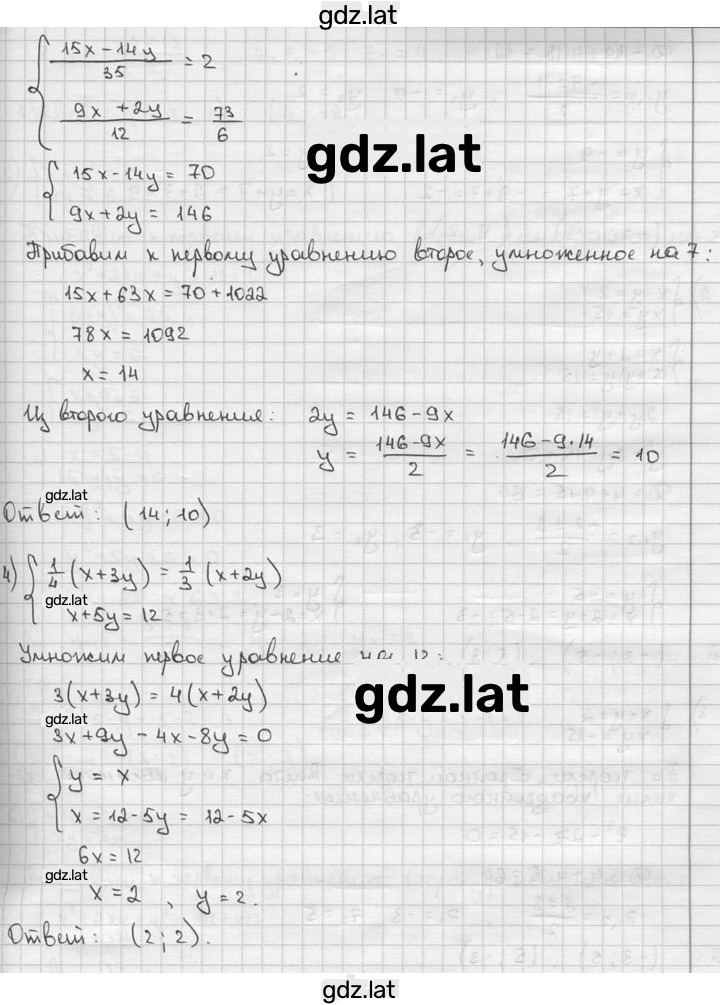 gdz.lat
{ (15x-14y)/35 = 2
(9x+2y)/12 = 73/6
gdz.lat
{ 15x-14y = 70
9x+2y = 146
Прибавим к первому уравнению второе, умноженное на 7:
15x+63x = 70+1022
78x = 1092
x = 14
Из второго уравнения: 2y = 146-9x
y = (146-9x)/2 = (146-9·14)/2 = 10
gdz.lat
Ответ: (14; 10)
4) { 1/4 (x+3y) = 1/3 (x+2y)
gdz.lat
x+5y = 12
Умножим первое уравнение
gdz.lat
3(x+3y) = 4(x+2y)
gdz.lat
3x+9y-4x-8y=0
{ y = x
x = 12-5y = 12-5x
6x = 12
gdz.lat
x = 2, y = 2.
Ответ: (2; 2).
gdz.lat